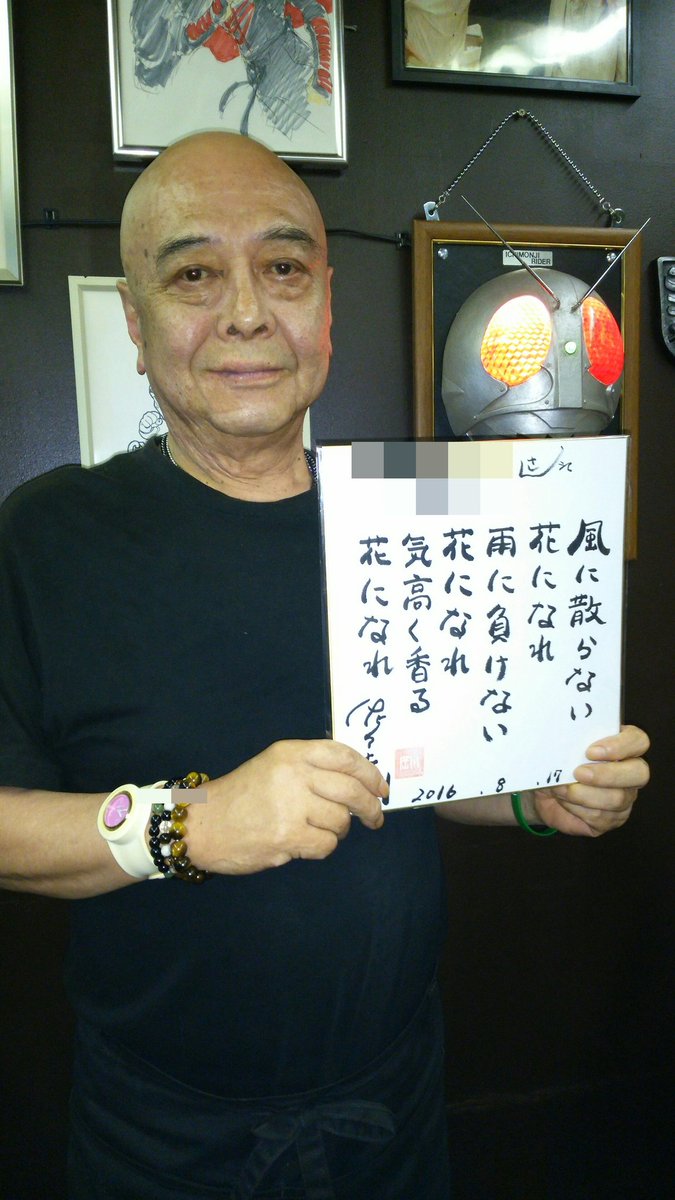 ICHIMONJI
RIDER
さん江
風に散らない
花になれ
雨に負けない
花になれ
気高く香る
花になれ
2016.8.17